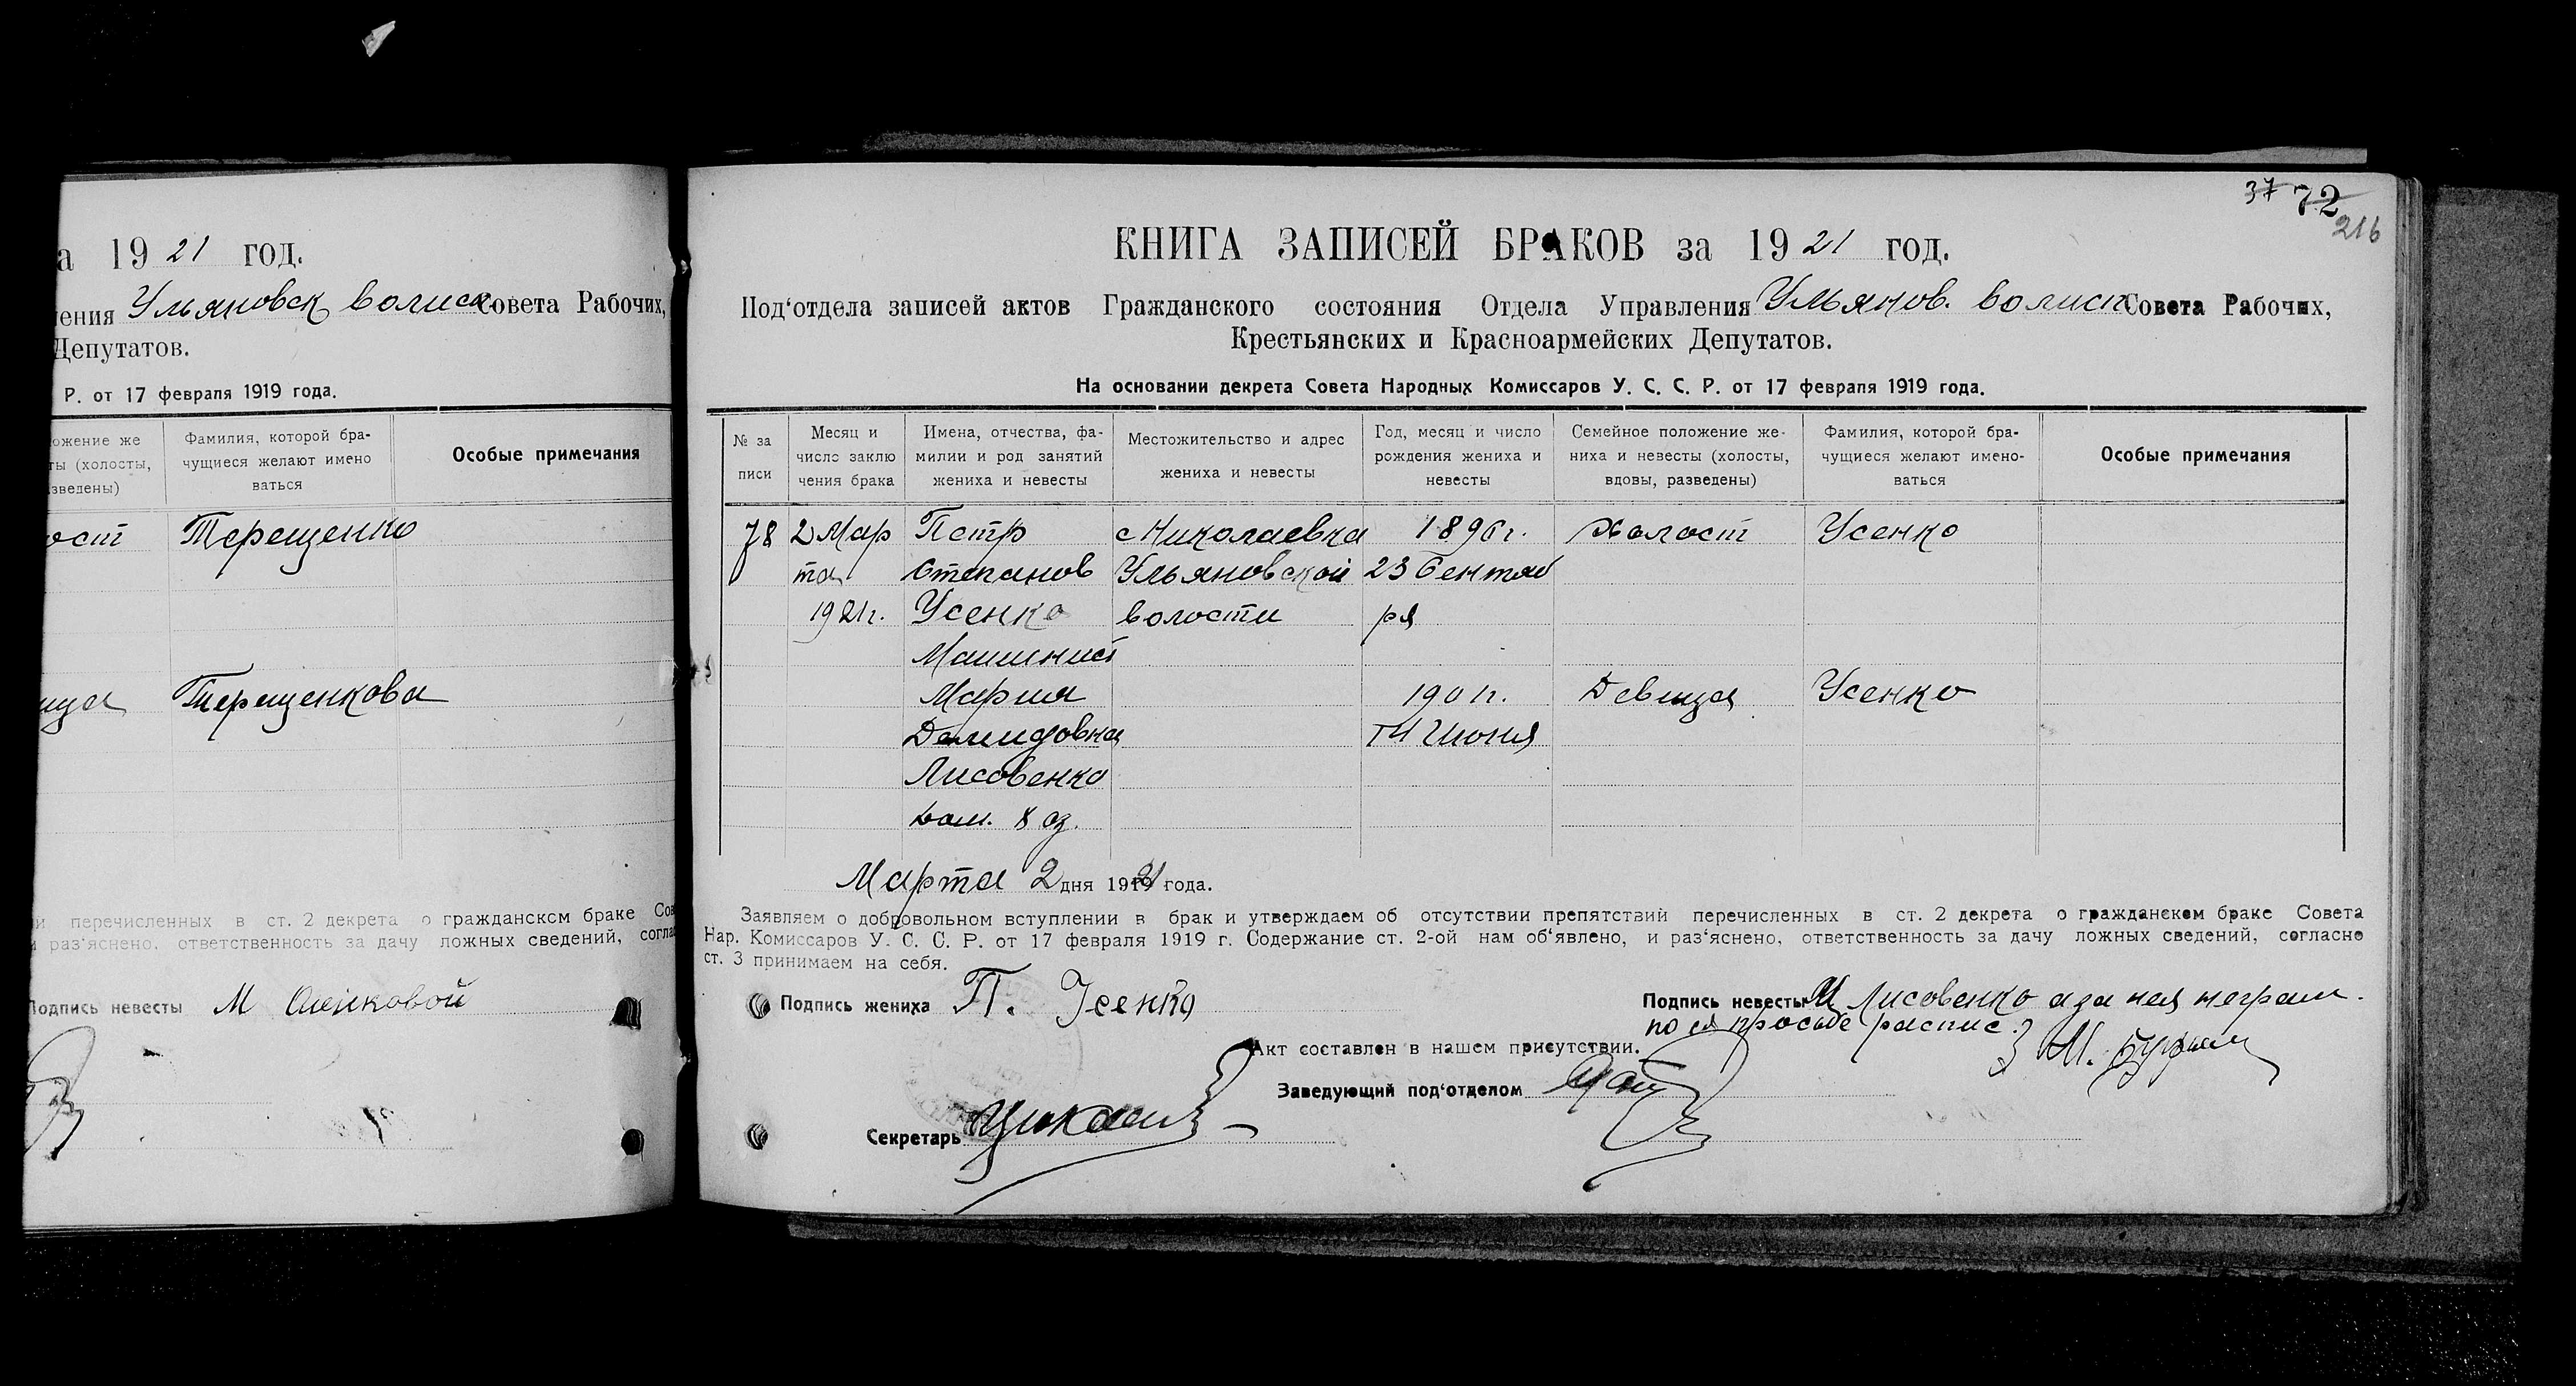 а 1921 год.
ения Ульяновск волиск Совета Рабочих,
Депутатов.
Р. от 17 февраля 1919 года.
ожение же
ты (холосты,
зведены)
Фамилия, которой бра-
чущиеся желают имено
ваться
Особые примечания
ост Терещенко
ица Терещенкова
и перечисленных в ст. 2 декрета о гражданском браке Сов
и раз'яснено, ответственность за дачу ложных сведений, соглас
Подпись невесты М
37 72
216
КНИГА ЗАПИСЕЙ БРАКОВ за 1921 год.
Под'отдела записей актов Гражданского состояния Отдела Управления Ульянов. волиск Совета Рабочих,
Крестьянских и Красноармейских Депутатов.
На основании декрета Совета Народных Комиссаров У. С. С. Р. от 17 февраля 1919 года.
№ за
писи
Месяц и
число заклю
чения брака
Имена, отчества, фа-
милии и род занятий
жениха и невесты
Местожительство и адрес
жениха и невесты
Год, месяц и число
рождения жениха и
невесты
Семейное положение же-
ниха и невесты (холосты,
вдовы, разведены)
Фамилия, которой бра-
чущиеся желают имено-
ваться
Особые примечания
78 2 Мар Петр с Николаевка 1896 г. Холост Усенко
та Степанов Ульяновской 23 Сентяб
1921 г. Усенко волости ря
Машинист
Мария 1901 г. Девица Усенко
Демидовна Июня
Лисовенко
дом. хоз.
Марта 2 дня 1921 года.
Заявляем о добровольном вступлении в брак и утверждаем об отсутствии препятствий перечисленных в ст. 2 декрета о гражданском браке Совета
Нар. Комиссаров У. С. С. Р. от 17 февраля 1919 г. Содержание ст. 2-ой нам об'явлено, и раз'яснено, ответственность за дачу ложных сведений, согласно
ст. 3 принимаем на себя.
Подпись жениха П. Усенко
Подпись невесты М Лисовенко а за нея неграм.
по ея просьбе распис.
М.
Акт составлен в нашем присутствии.
Заведующий под'отделом
Секретарь